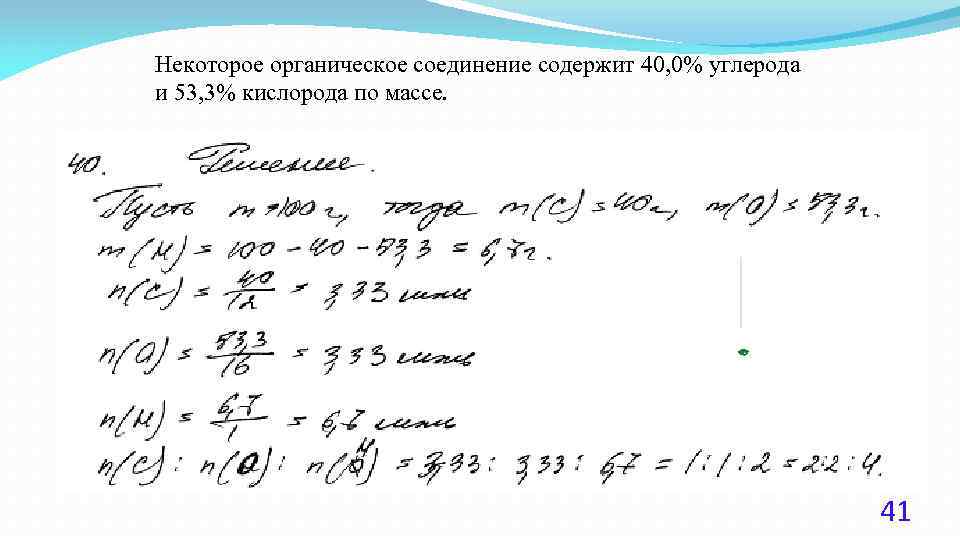 Некоторое органическое соединение содержит 40,0% углерода
и 53,3% кислорода по массе.
40. Решение.
Пусть m=100г, тогда m(C)=40г, m(O)=53,3г.
m(H) = 100 - 40 - 53,3 = 6,7г.
n(C) = 40/12 = 3,33 моль
n(O) = 53,3/16 = 3,33 моль
n(H) = 6,7/1 = 6,7 моль
n(C) : n(O) : n(H) = 3,33 : 3,33 : 6,7 = 1:1:2 = 2:2:4.
41